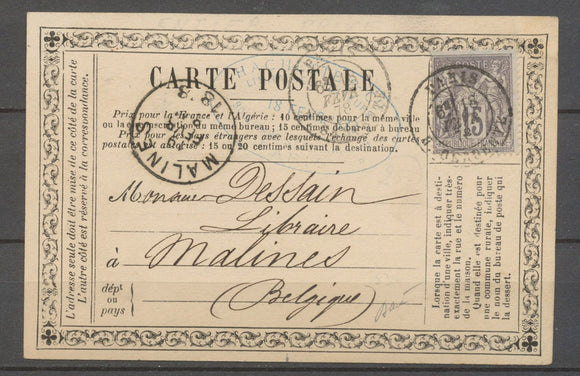 CARTE POSTALE
Prix pour la France et l'Algérie : 10 centimes pour la même ville
ou la circonscription du même bureau ; 15 centimes de bureau à bureau
Prix pour les pays étrangers avec lesquels l'échange des cartes
postales est autorisé : 15 ou 20 centimes suivant la destination.
L'adresse seule doit être mise de ce côté de la carte
L'autre côté est réservé à la correspondance.
PARIS
15
MALINES
Monsieur Dessain
Libraire
à Malines
(Belgique)
dépt
ou
pays
Lorsque la carte est à desti-
nation d'une ville, indiquer très-
exactement la rue et le numéro
de la maison.
Quand elle est destinée pour
une commune rurale, indiquer
le nom du bureau de poste qui
la dessert.